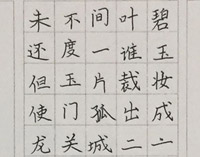 碧玉妆成一
叶谁裁出二
间一片孤城
不度玉门关
未还但使龙